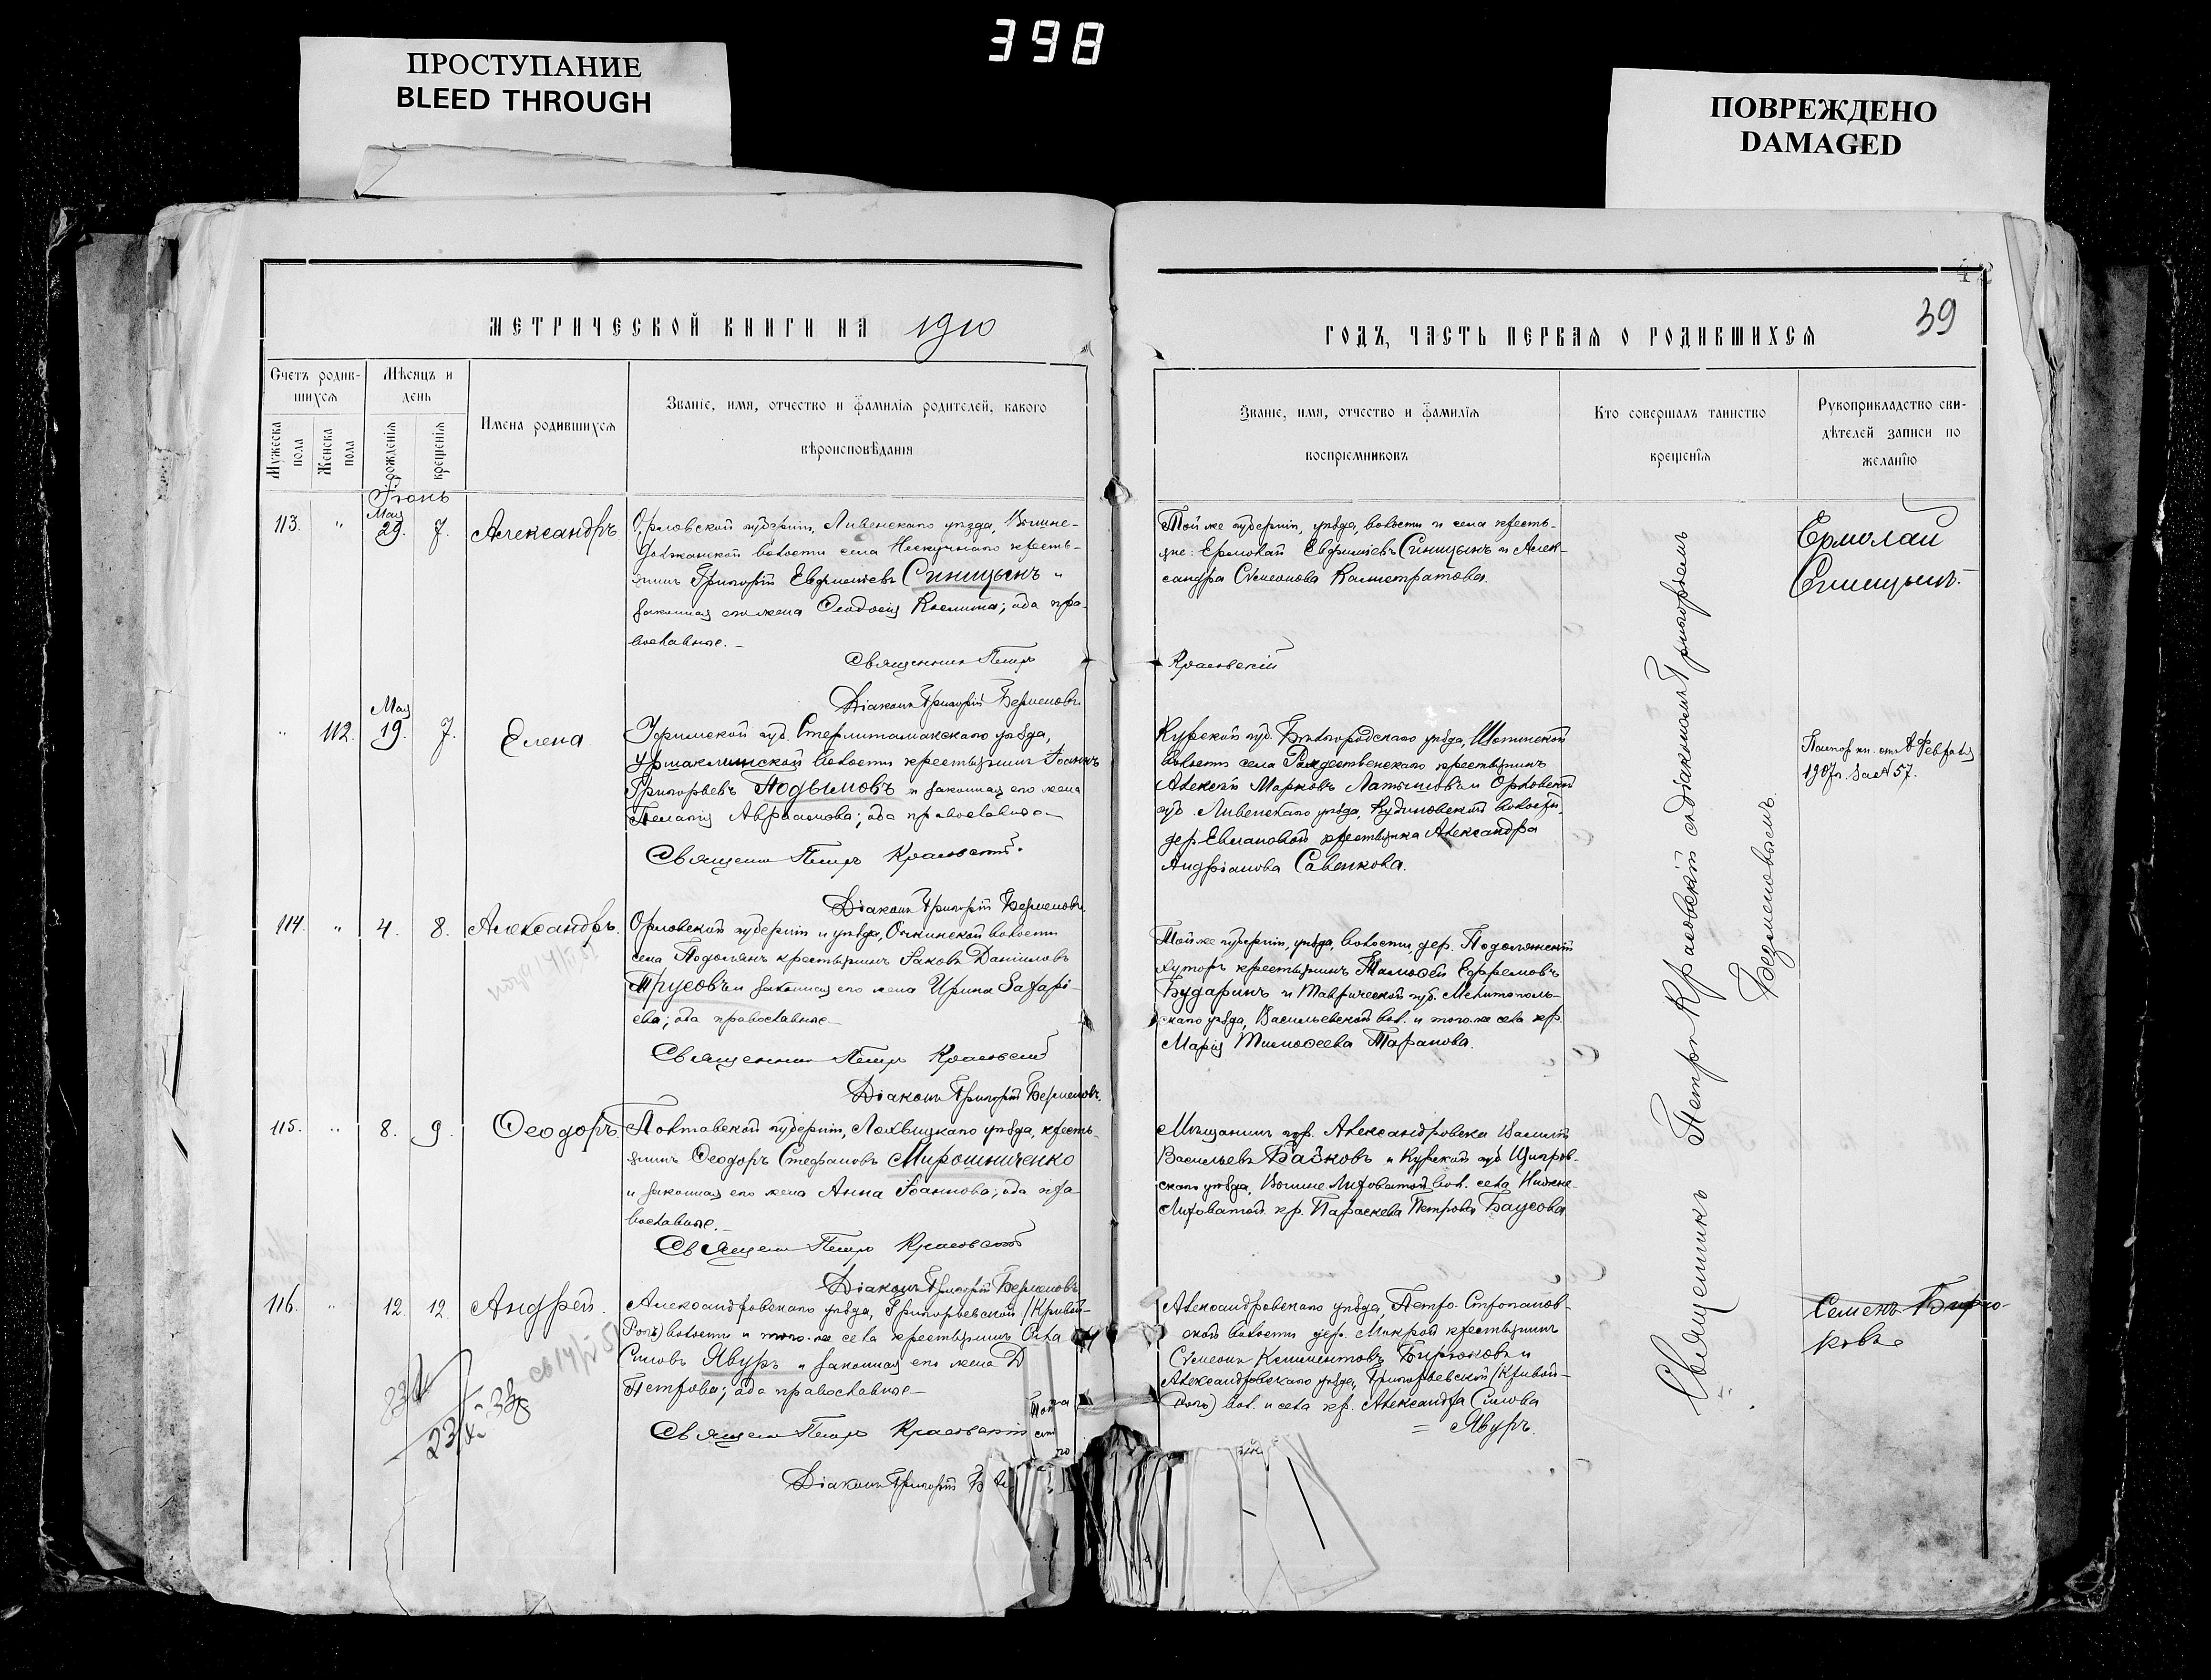 398
ПРОСТУПАНИЕ
BLEED THROUGH
ПОВРЕЖДЕНО
DAMAGED
МЕТРИЧЕСКОЙ КНИГИ НА 1910
ГОДЪ, ЧАСТЬ ПЕРВАЯ О РОДИВШИХСЯ
39
Счетъ родив-
шихся
Мѣсяцъ и
день
Мужеска
пола
Женска
пола
рожденія
крещенія
Имена родившихся
Званіе, имя, отчество и фамилія родителей, какого
вѣроисповѣданія
Званіе, имя, отчество и фамилія
воспріемниковъ
Кто совершалъ таинство
крещенія
Рукоприкладство сви-
дѣтелей записи по
желанію
Іюнь
113. " Мая 29. 7. Александръ
Орловской губерніи, Ливенскаго уѣзда,
Должанской волости села Нескучнаго кресть-
янинъ Григорій Евфиміевъ Синицынъ и
законная его жена Ѳеодосія; оба пра-
вославные.
Священник Петръ
Діаконъ Григорій Безменовъ
Той же губерніи, уѣзда, волости и села кресть-
яне: Ермолай Евфиміевъ Синицынъ и Алек-
сандра Сѵмеонова Калистратова.
Красовскій
Ермолай
Синицынъ.
" 112. Мая 19. 7. Елена
Уфимской губ. Стерлитамакскаго уѣзда,
волости крестьянинъ Іоаннъ
Григорьевъ Подымовъ и законная его жена
Пелагія Авраамова; оба православные
Священник Петръ Красовскій.
Діаконъ Григорій Безменовъ
Курской губ. Бѣлгородскаго уѣзда,
волости села Рождественскаго крестьянинъ
Алексѣй Марковъ Латышовъ и Орловской
губ. Ливенскаго уѣзда, волости,
дер. Евлановой крестьянка Александра
Андріанова Савенкова.
Паспор. кн. отъ Февраля
1907 г. за № 57.
114. " 4. 8. Александръ.
Орловской губерніи и уѣзда, волости
села Подолянъ крестьянинъ Іаковъ Даніиловъ
Трусовъ и законная его жена Ирина Захарі-
ева; оба православные
Священник Петръ Красовскій
Діаконъ Григорій Безменовъ.
Той же губерніи, уѣзда, волости, дер. Подолянскій
хуторъ крестьянинъ Тимоѳей Ефремовъ
Бударинъ и Таврической губ. Мелитополь-
скаго уѣзда, Васильевской вол. и того же села кр.
Марія Тимоѳеева Таранова.
115. " 8. 9. Ѳеодоръ.
Полтавской губерніи, Лохвицкаго уѣзда, кресть-
янинъ Ѳеодоръ Стефановъ Мирошниченко
и законная его жена Анна Іоаннова; оба пра-
вославные.
Священ Петръ Красовскій
Діаконъ Григорій Безменовъ
Мѣщанинъ гор. Александровска Василій
Васильевъ Байковъ и Курской губ. Щигров-
скаго уѣзда, вол. села Нижне-
кр. Параскева Петрова Баусова
116. " 12. 12. Андрей.
Александровскаго уѣзда, Григорьевской /Кривой-
Рогъ) волости и того-же села крестьянинъ
Явуръ и законная его жена
Петрова; оба православные
Священ Петръ Красовскій
Діаконъ Григорій
Александровскаго уѣзда, Петро-
ской волости дер. Мокрой крестьянинъ
Сѵмеонъ Климентовъ Бирюковъ и
Александровскаго уѣзда, Григорьевской /Кривой-
Рогъ) вол. и села кр. Александра
= Явуръ.
Семенъ Бирю-
ковъ
Священникъ Петръ Красовскій съ діакономъ Григоріемъ
Безменовымъ.